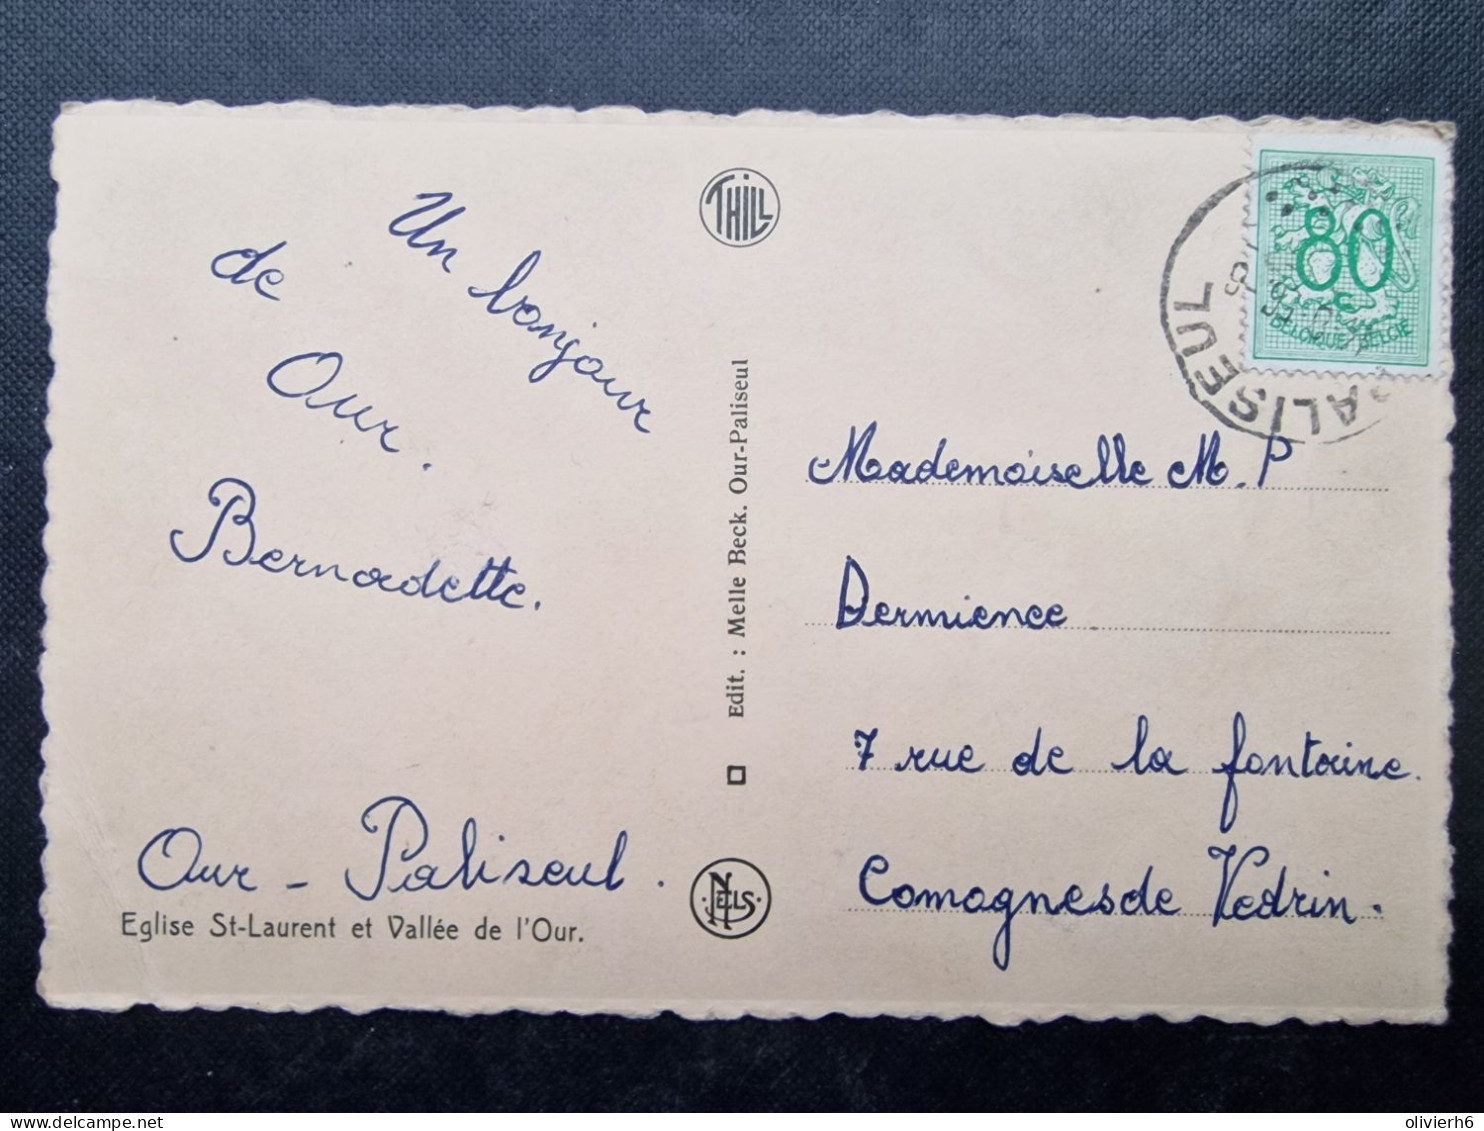 Un bonjour
de
Our.
Bernadette.
Our - Paliseul.
Eglise St-Laurent et Vallée de l'Our.
THILL
Edit. : Melle Beck. Our-Paliseul
NELS
80
BELGIQUE BELGIE
PALISEUL
Mademoiselle M. P
Dermience
7 rue de la fontaine.
Comognes de Vedrin.
olivierh6